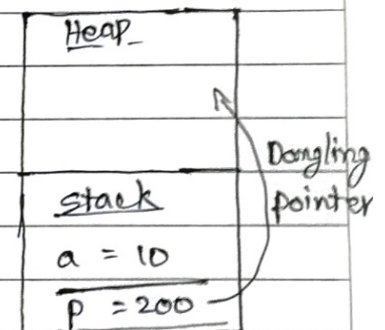 Heap
Dangling
pointer
Stack
a = 10
p = 200